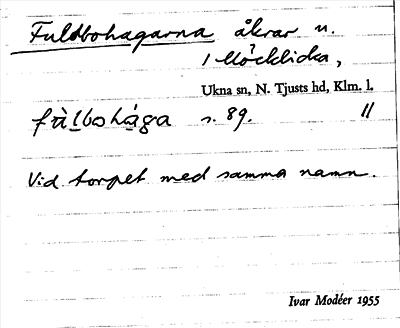 Fuldbohagarna åkrar n.
/ Möcklicka,
Ukna sn, N. Tjusts hd, Klm. l.
fùlbohága s. 89. //
Vid torpet med samma namn.
Ivar Modéer 1955